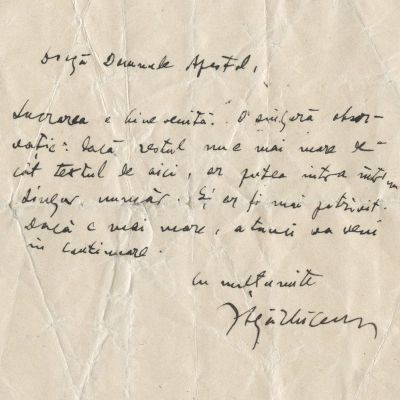 Dragă Domnule Apostol,
Lucrarea e binevenită. O singură obser-
vație: Dacă restul nu e mai mare de-
cât textul de aici, ar putea intra într-un
singur număr. Și ar fi mai potrivit.
Dacă e mai mare, atunci va veni
în continuare.
Cu mulțumite